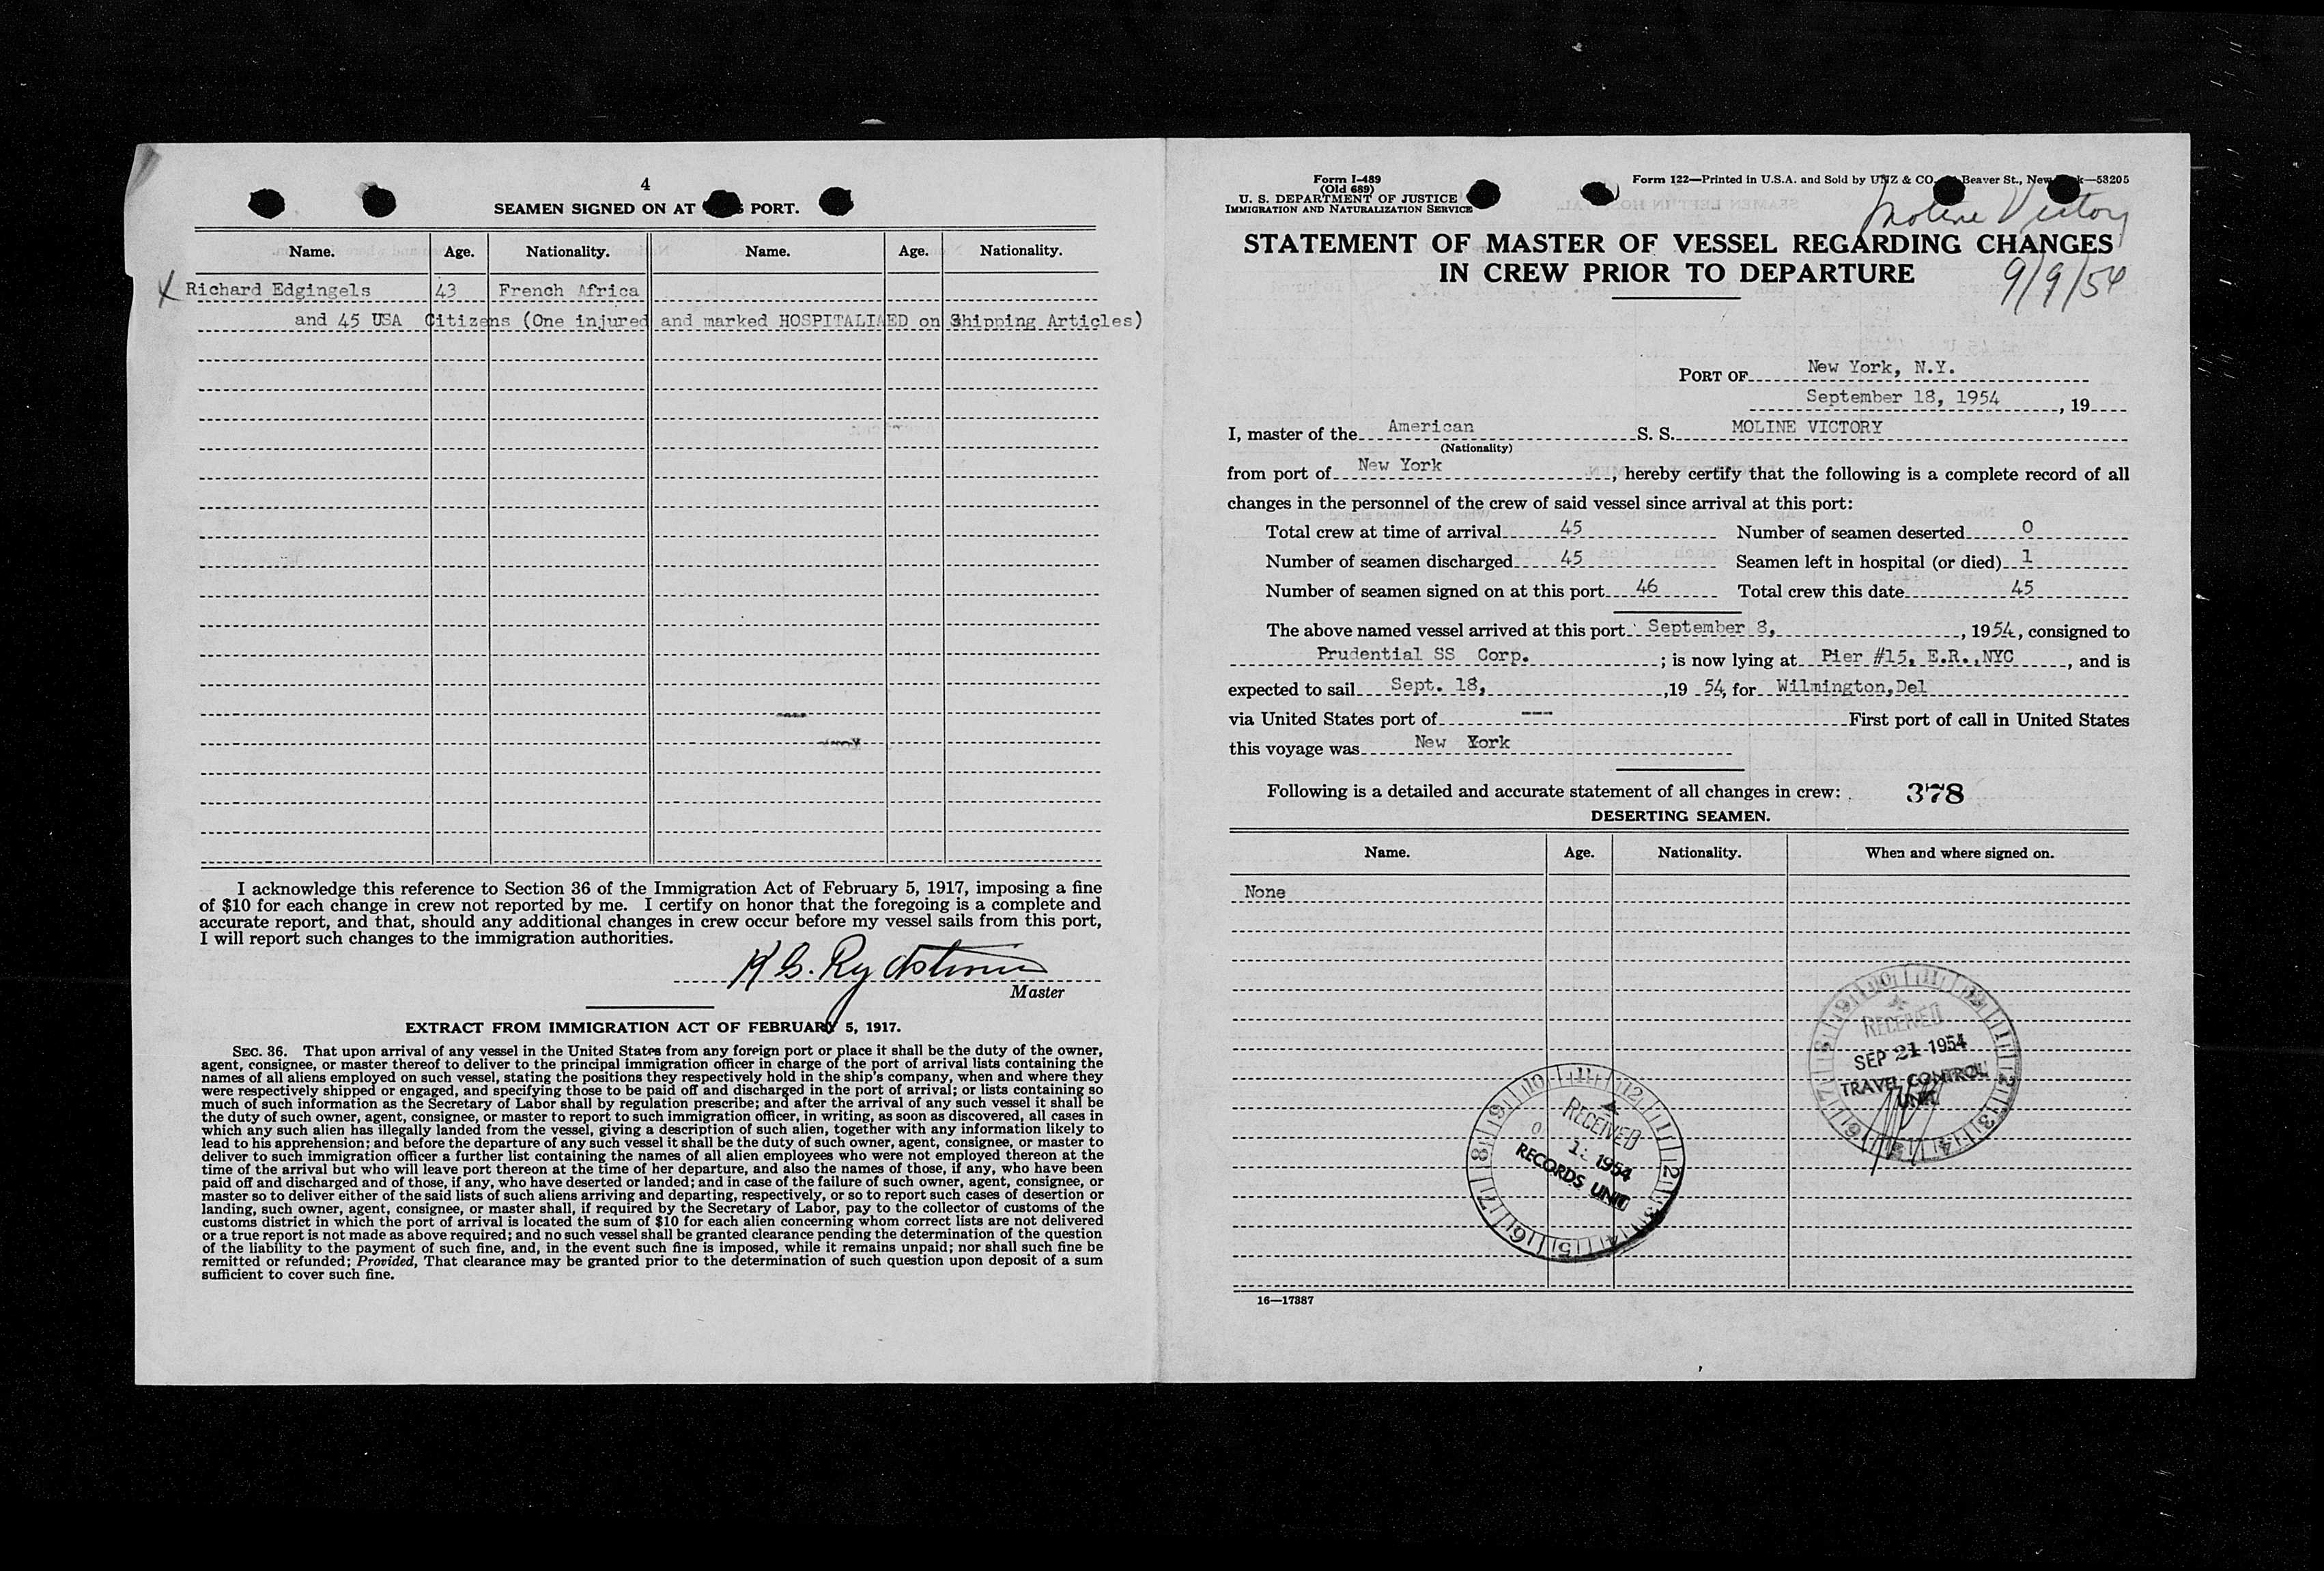 4
SEAMEN SIGNED ON AT PORT.
Name. Age. Nationality. Name. Age. Nationality.
X Richard Edgingels 43 French Africa
and 45 USA Citizens (One injured and marked HOSPITALIZED on Shipping Articles)
I acknowledge this reference to Section 36 of the Immigration Act of February 5, 1917, imposing a fine
of $10 for each change in crew not reported by me. I certify on honor that the foregoing is a complete and
accurate report, and that, should any additional changes in crew occur before my vessel sails from this port,
I will report such changes to the immigration authorities.
K G. Rydstrom
Master
EXTRACT FROM IMMIGRATION ACT OF FEBRUARY 5, 1917.
SEC. 36. That upon arrival of any vessel in the United States from any foreign port or place it shall be the duty of the owner,
agent, consignee, or master thereof to deliver to the principal immigration officer in charge of the port of arrival lists containing the
names of all aliens employed on such vessel, stating the positions they respectively hold in the ship's company, when and where they
were respectively shipped or engaged, and specifying those to be paid off and discharged in the port of arrival; or lists containing so
much of such information as the Secretary of Labor shall by regulation prescribe; and after the arrival of any such vessel it shall be
the duty of such owner, agent, consignee, or master to report to such immigration officer, in writing, as soon as discovered, all cases in
which any such alien has illegally landed from the vessel, giving a description of such alien, together with any information likely to
lead to his apprehension; and before the departure of any such vessel it shall be the duty of such owner, agent, consignee, or master to
deliver to such immigration officer a further list containing the names of all alien employees who were not employed thereon at the
time of the arrival but who will leave port thereon at the time of her departure, and also the names of those, if any, who have been
paid off and discharged and of those, if any, who have deserted or landed; and in case of the failure of such owner, agent, consignee, or
master so to deliver either of the said lists of such aliens arriving and departing, respectively, or so to report such cases of desertion or
landing, such owner, agent, consignee, or master shall, if required by the Secretary of Labor, pay to the collector of customs of the
customs district in which the port of arrival is located the sum of $10 for each alien concerning whom correct lists are not delivered
or a true report is not made as above required; and no such vessel shall be granted clearance pending the determination of the question
of the liability to the payment of such fine, and, in the event such fine is imposed, while it remains unpaid; nor shall such fine be
remitted or refunded; Provided, That clearance may be granted prior to the determination of such question upon deposit of a sum
sufficient to cover such fine.
Form I-489
(Old 689)
U. S. DEPARTMENT OF JUSTICE
IMMIGRATION AND NATURALIZATION SERVICE
Form 122—Printed in U.S.A. and Sold by UNZ & CO. Beaver St., New —53205
Moline Victory
STATEMENT OF MASTER OF VESSEL REGARDING CHANGES
IN CREW PRIOR TO DEPARTURE
9/9/54
PORT OF New York, N.Y.
September 18, 1954, 19
I, master of the American S. S. MOLINE VICTORY
(Nationality)
from port of New York, hereby certify that the following is a complete record of all
changes in the personnel of the crew of said vessel since arrival at this port:
Total crew at time of arrival 45 Number of seamen deserted 0
Number of seamen discharged 45 Seamen left in hospital (or died) 1
Number of seamen signed on at this port 46 Total crew this date 45
The above named vessel arrived at this port September 8, , 1954, consigned to
Prudential SS Corp. ; is now lying at Pier #15, E.R.,NYC , and is
expected to sail Sept. 18, ,19 54, for Wilmington,Del
via United States port of --- First port of call in United States
this voyage was New York
Following is a detailed and accurate statement of all changes in crew: 378
DESERTING SEAMEN.
Name. Age. Nationality. When and where signed on.
None
RECEIVED
SEP 21 1954
TRAVEL CONTROL
UNIT
RECEIVED
1954
RECORDS UNIT
16—17387